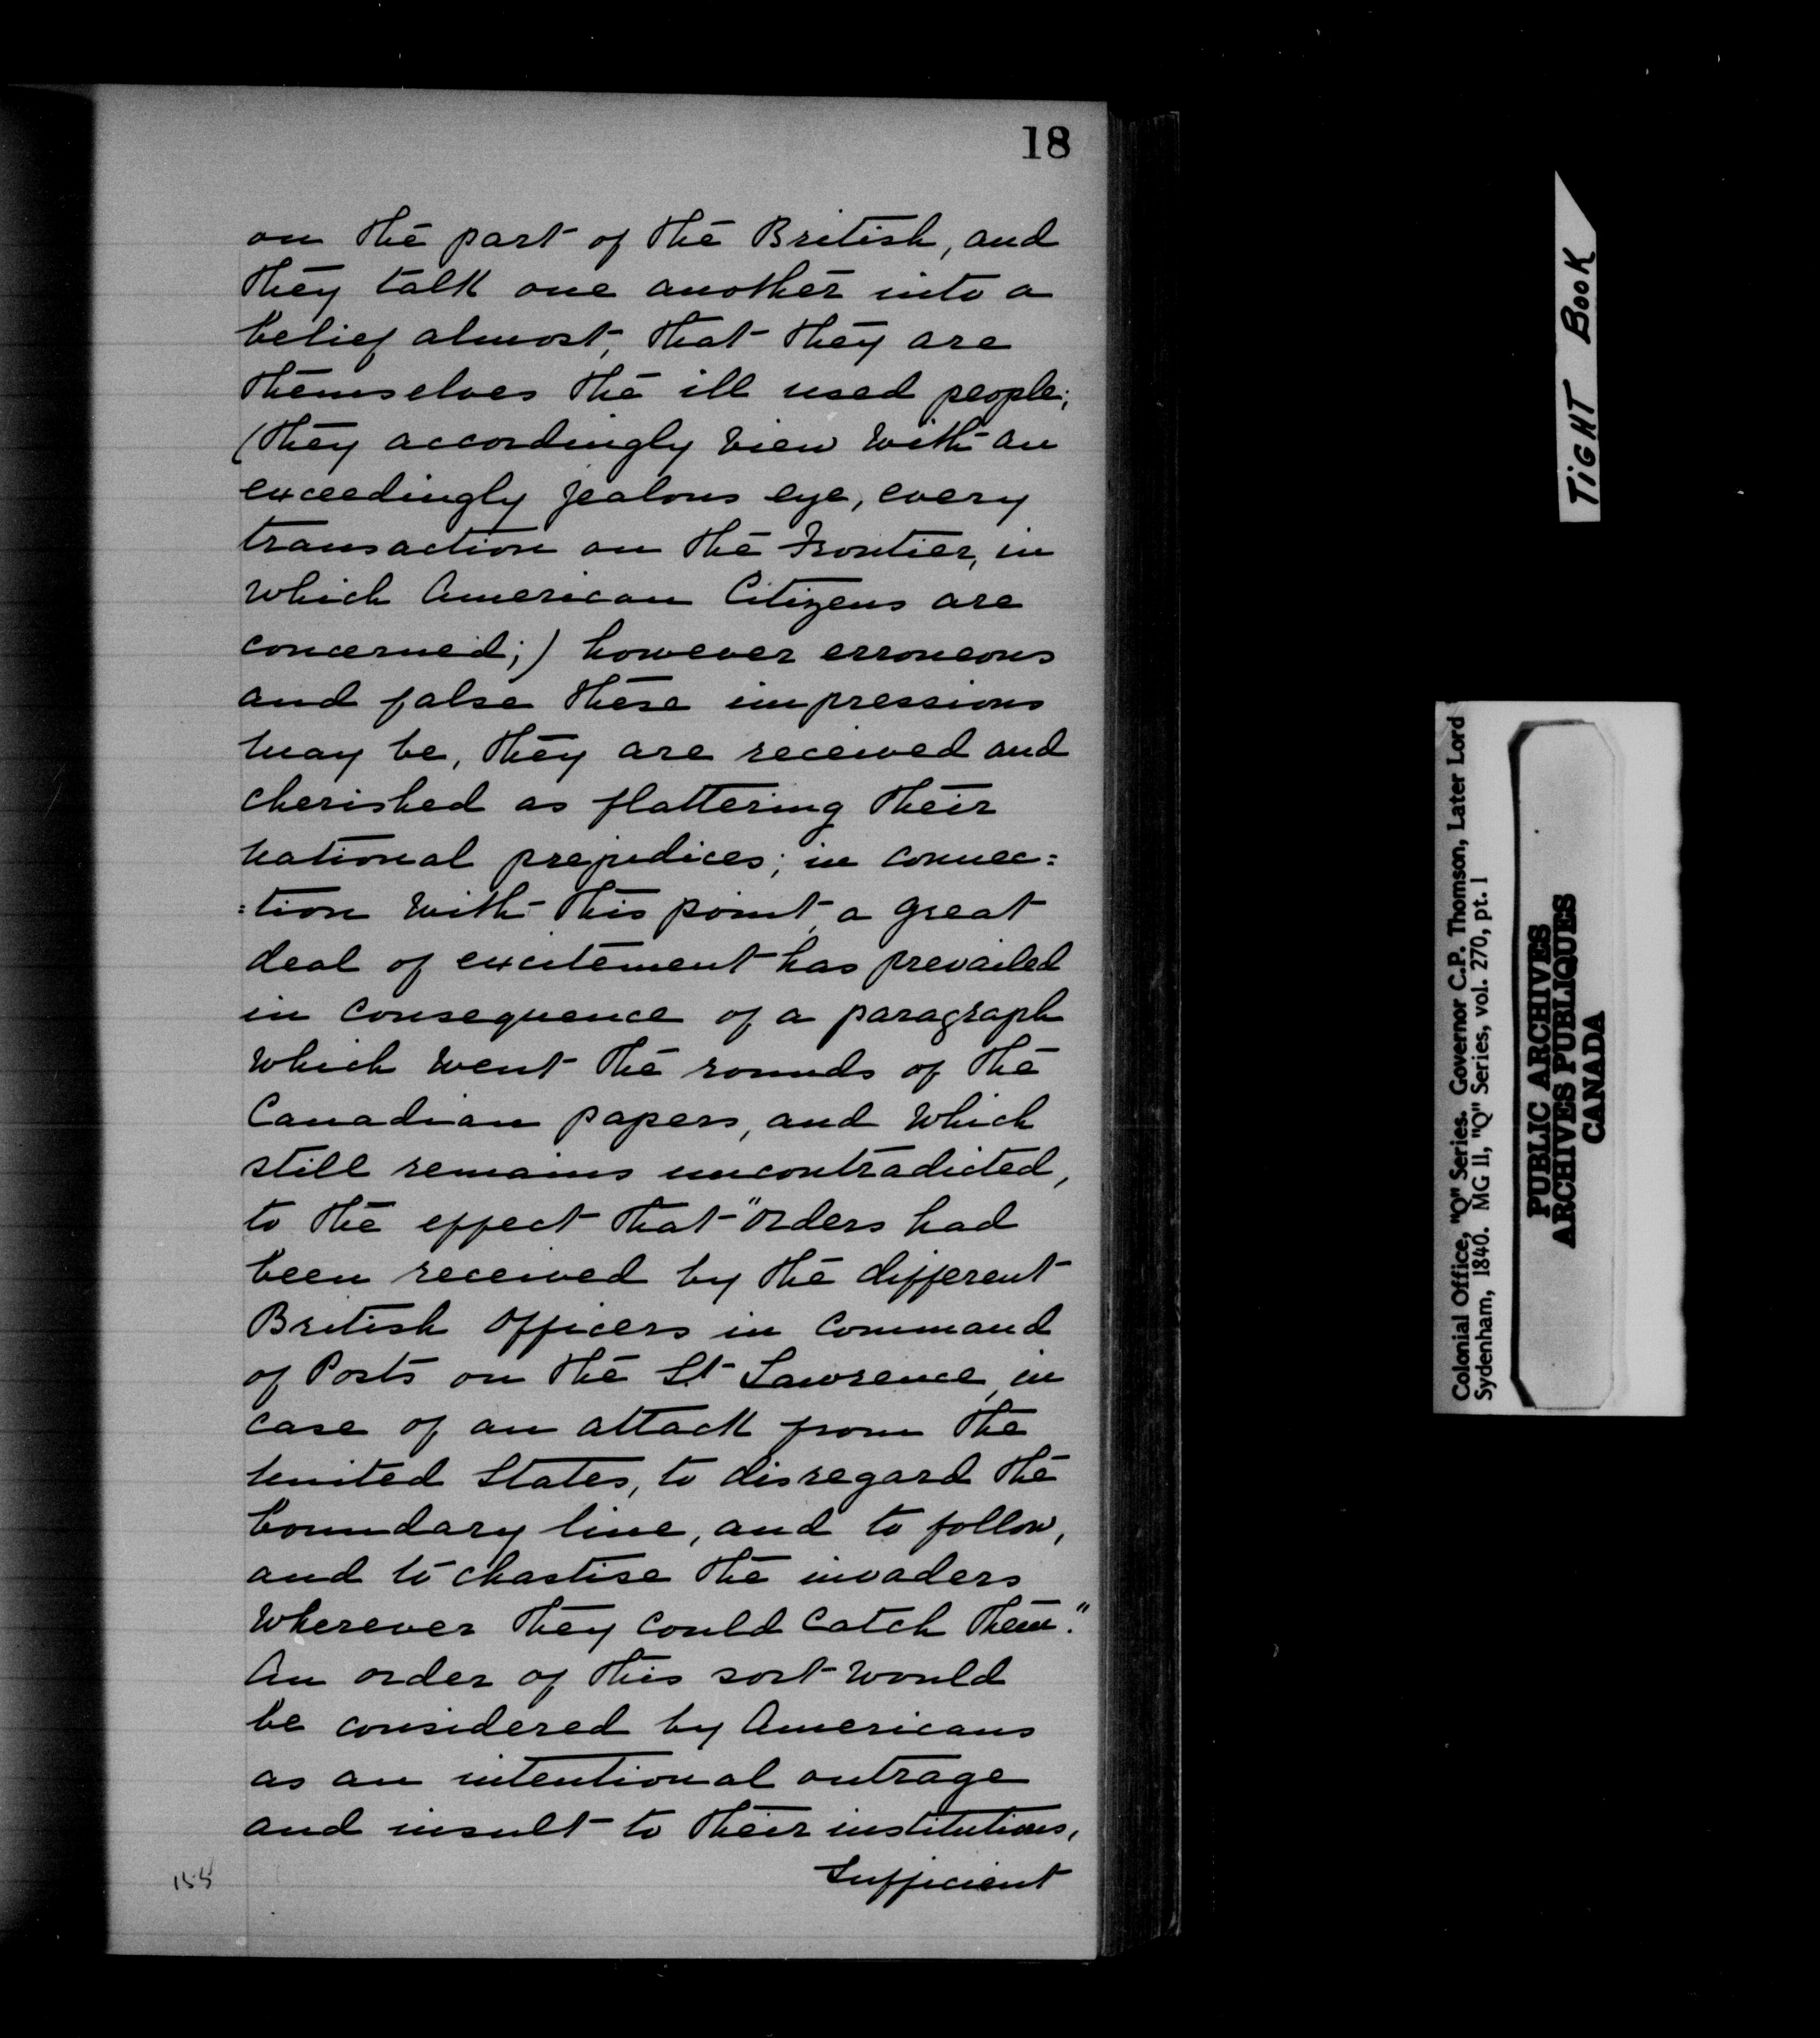 18
on the part of the British, and
they talk one another into a
belief almost, that they are
themselves the ill used people;
(they accordingly view with an
exceedingly jealous eye, every
transaction on the Frontier, in
which American Citizens are
concerned;) however erroneous
and false these impressions
may be, they are received and
cherished as flattering their
national prejudices; in connec=
=tion with this point, a great
deal of excitement has prevailed
in consequence of a paragraph
which went the rounds of the
Canadian papers, and which
still remains uncontradicted,
to the effect that "orders had
been received by the different
British Officers in Command
of Posts on the St Lawrence, in
case of an attack from the
United States, to disregard the
boundary line, and to follow,
and to chastise the invaders
wherever they could catch them."
An order of this sort would
be considered by Americans
as an intentional outrage
and insult to their institutions,
sufficient
155
TIGHT BOOK
Colonial Office, "Q" Series. Governor C.P. Thomson, Later Lord
Sydenham, 1840. MG 11, "Q" Series, vol. 270, pt. 1
PUBLIC ARCHIVES
ARCHIVES PUBLIQUES
CANADA